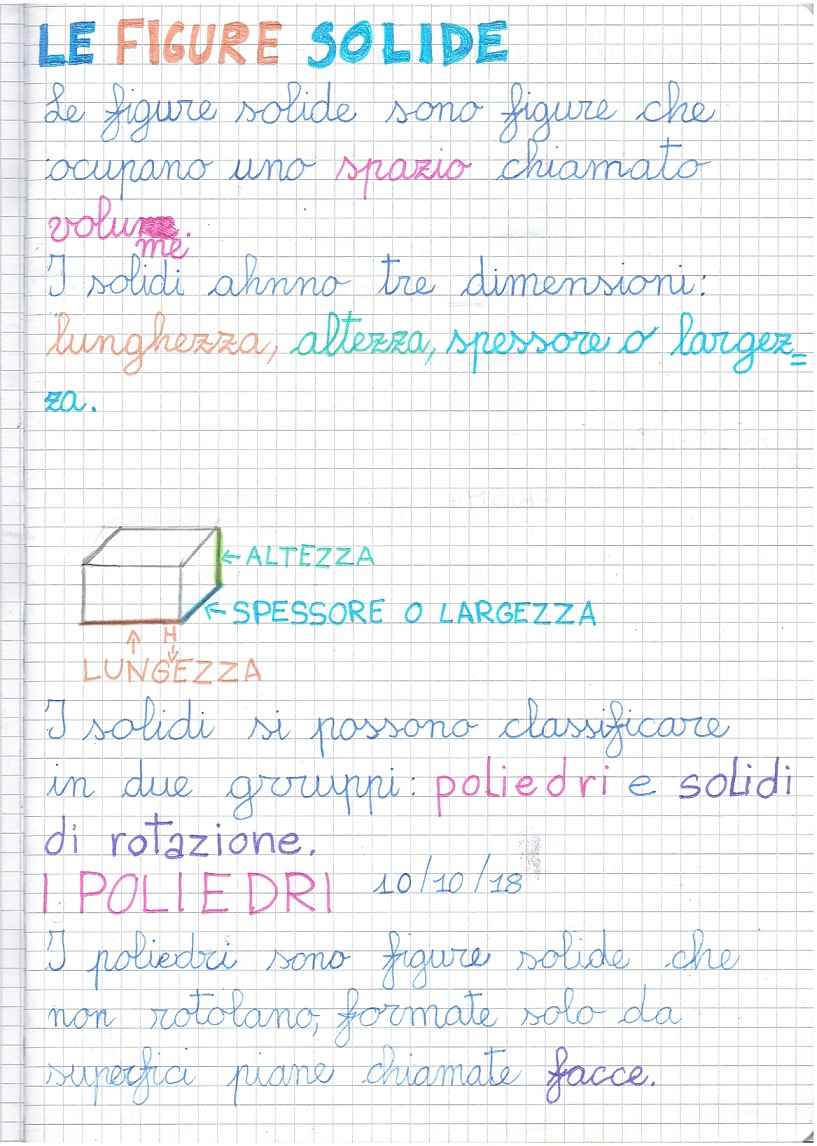 LE FIGURE SOLIDE
Le figure solide sono figure che
ocupano uno spazio chiamato
volu
me.
I solidi ahnno tre dimensioni:
lunghezza, altezza, spessore o largez=
za.
← ALTEZZA
← SPESSORE O LARGEZZA
H
LUNGEZZA
I solidi si possono classificare
in due grruppi: poliedri e solidi
di rotazione.
I POLIEDRI 10/10/18
I poliedri sono figure solide che
non rotolano, formate solo da
superfici piane chiamate facce.